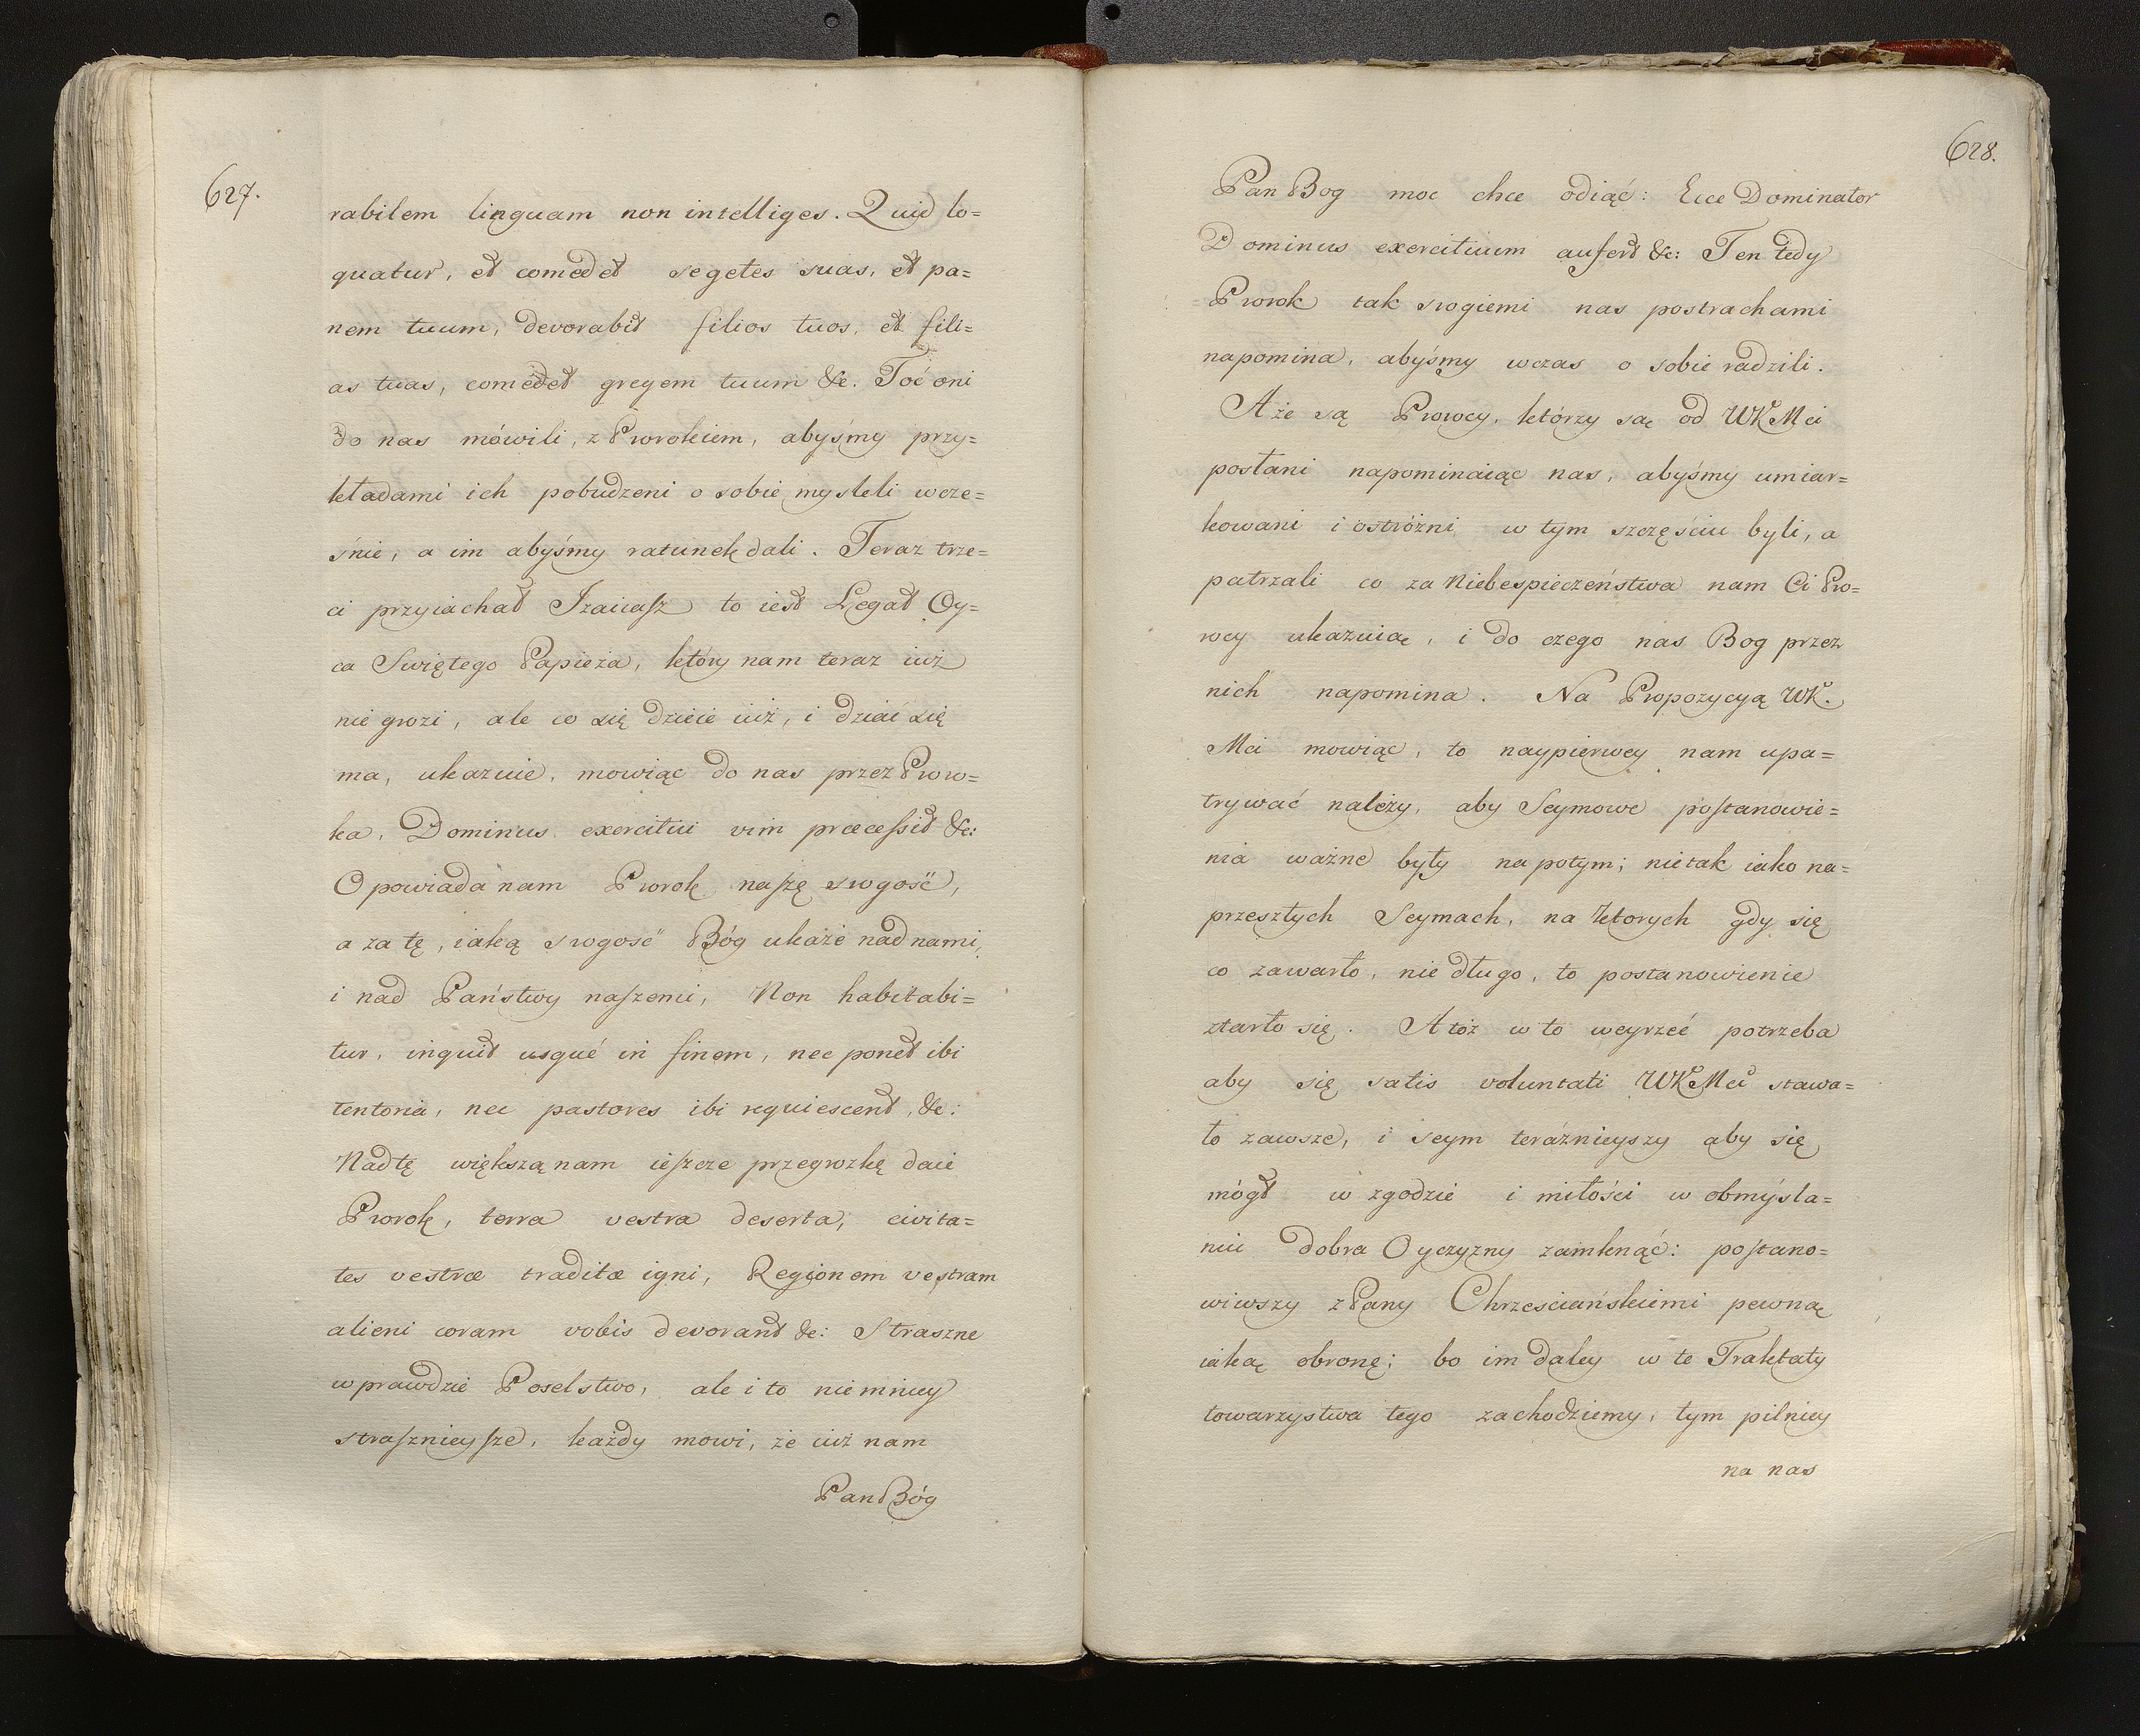 627.
rabilem linguam non intelliges. Quid lo=
quatur, et comedet segetes suas, et pa=
nem tuum, devorabit filios tuos, et fili=
as tuas, comedet gregem tuum &c. Toć oni
do nas mówili, z Prorokiem, abyśmy przy=
kładami ich pobudzeni o sobie mysleli wcze=
śnie, a im abyśmy ratunek dali. Teraz trze=
ci przyiachał Izaiasz to iest Legat Oy=
ca Swiętego Papieża, który nam teraz iuż
nie grozi, ale co się dzieie iuż, i dziać się
ma, ukazuie, mowiąc do nas przez Proro=
ka, Dominus exercitui vim præcessit &c:
Opowiada nam Prorok naszę srogość,
a za tę, iaką srogość Bóg ukaże nad nami,
i nad Państwy naszemi, Non habitabi=
tur, inquit usqué in finem, nec ponet ibi
tentoria, nec pastores ibi requiescent, &c:
Nad tę większą nam ieszcze przegrożkę daie
Prorok, terra vestra deserta; civita=
tes vestræ traditæ igni, Regionem vestram
alieni coram vobis devorant &c: Straszne
wprawdzie Poselstwo, ale i to niemniey
strasznieysze, każdy mowi, że iuż nam
Pan Bóg
628.
Pan Bog moc chce odiąć: Ecce Dominator
Dominus exercituum aufert &c: Ten tedy
Prorok tak srogiemi nas postrachami
napomina, abyśmy wczas o sobie radzili.
A że są Prorocy, którzy są od WK Mci
posłani napominaiąc nas, abyśmy umiar=
kowani i ostróżni w tym szczęściu byli, a
patrzali co za Niebespieczeństwa nam Ci Pro=
rocy ukazuią, i do czego nas Bog przez
nich napomina. Na Propozycyą WK.
Mci mowiąc, to naypierwey nam upa=
trywać należy, aby Seymowe postanowie=
nia ważne były na potym; nie tak iako na=
przeszłych Seymach, na ktorych gdy się
co zawarło, nie długo, to postanowienie
ztarło się. A toż w to weyrzeć potrzeba
aby się satis voluntati WK Mci stawa=
ło zawsze, i seym teráznieyszy aby się
mógł w zgodzie i miłości w obmýsla=
niu dobra Oyczyzny zamknąć: postano=
wiwszy z Pany Chrzesciańskiemi pewną
iaką obronę; bo im daley w te Traktaty
towarzystwa tego zachodziemy, tym pilniey
na nas